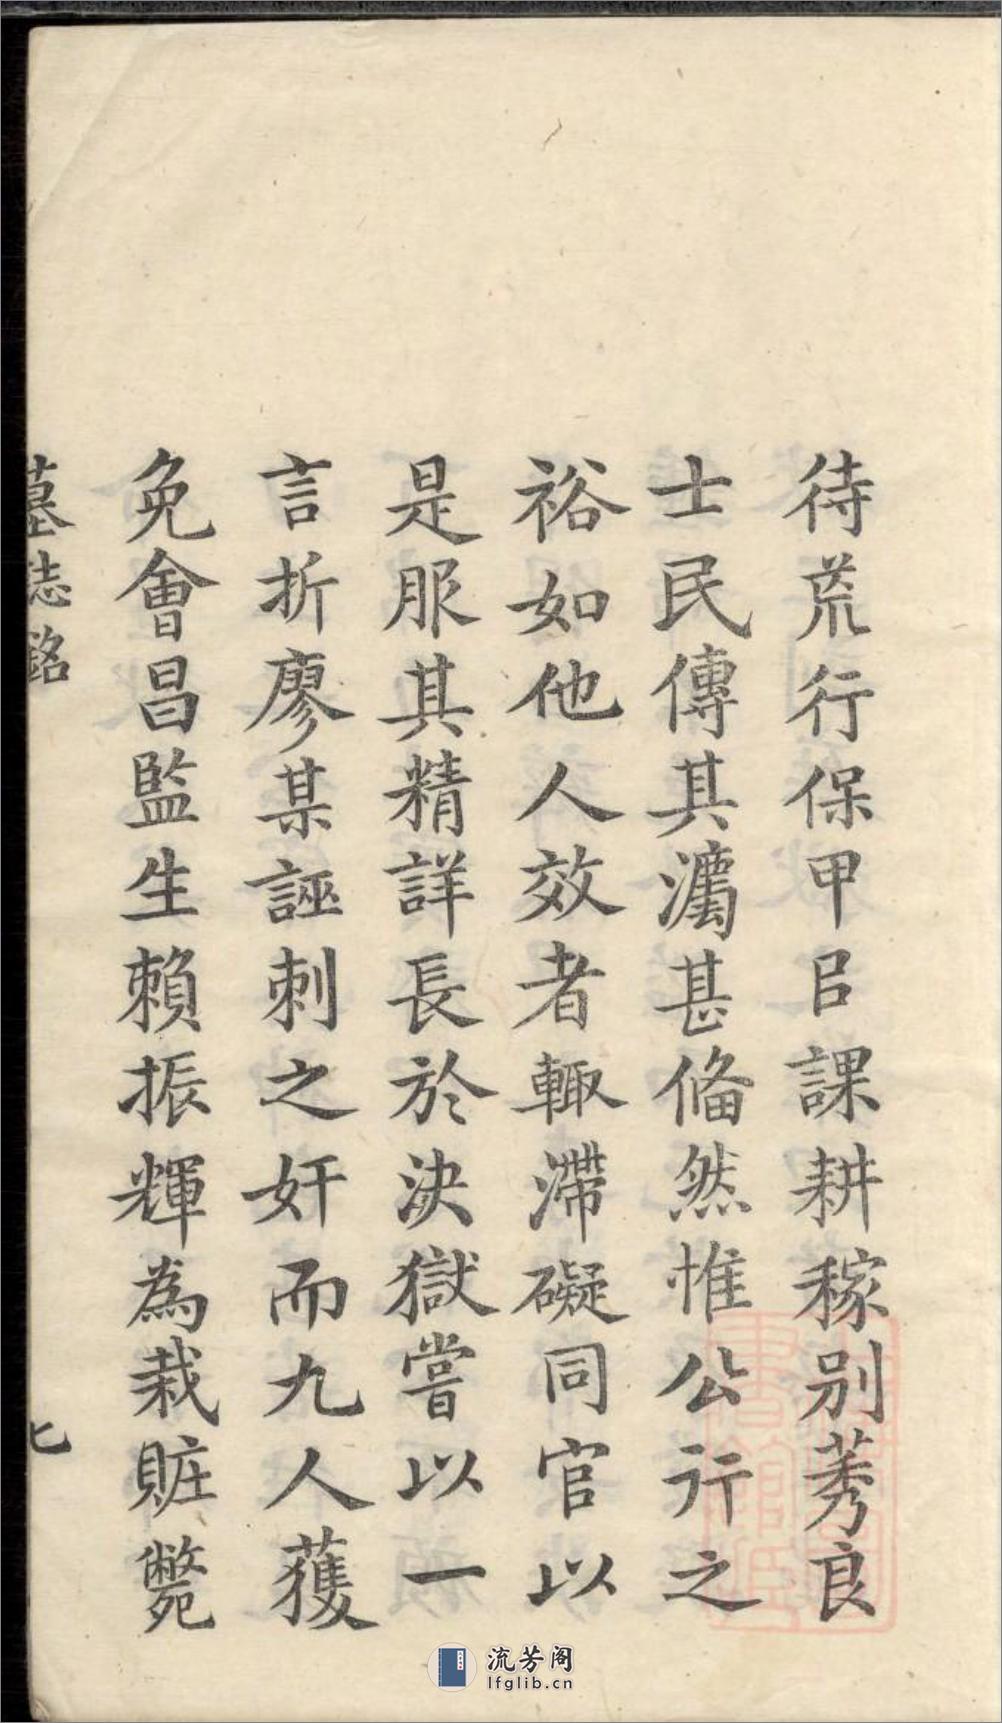 待荒行保甲㠯課耕稼別莠良
士民傳其灋甚偹然惟公行之
裕如他人效者輙滯礙同官以
是服其精詳長於決獄嘗以一
言折廖某誣刺之奸而九人獲
免會昌監生賴振輝為栽賍斃
墓誌銘
七
流芳阁
lfglib.cn